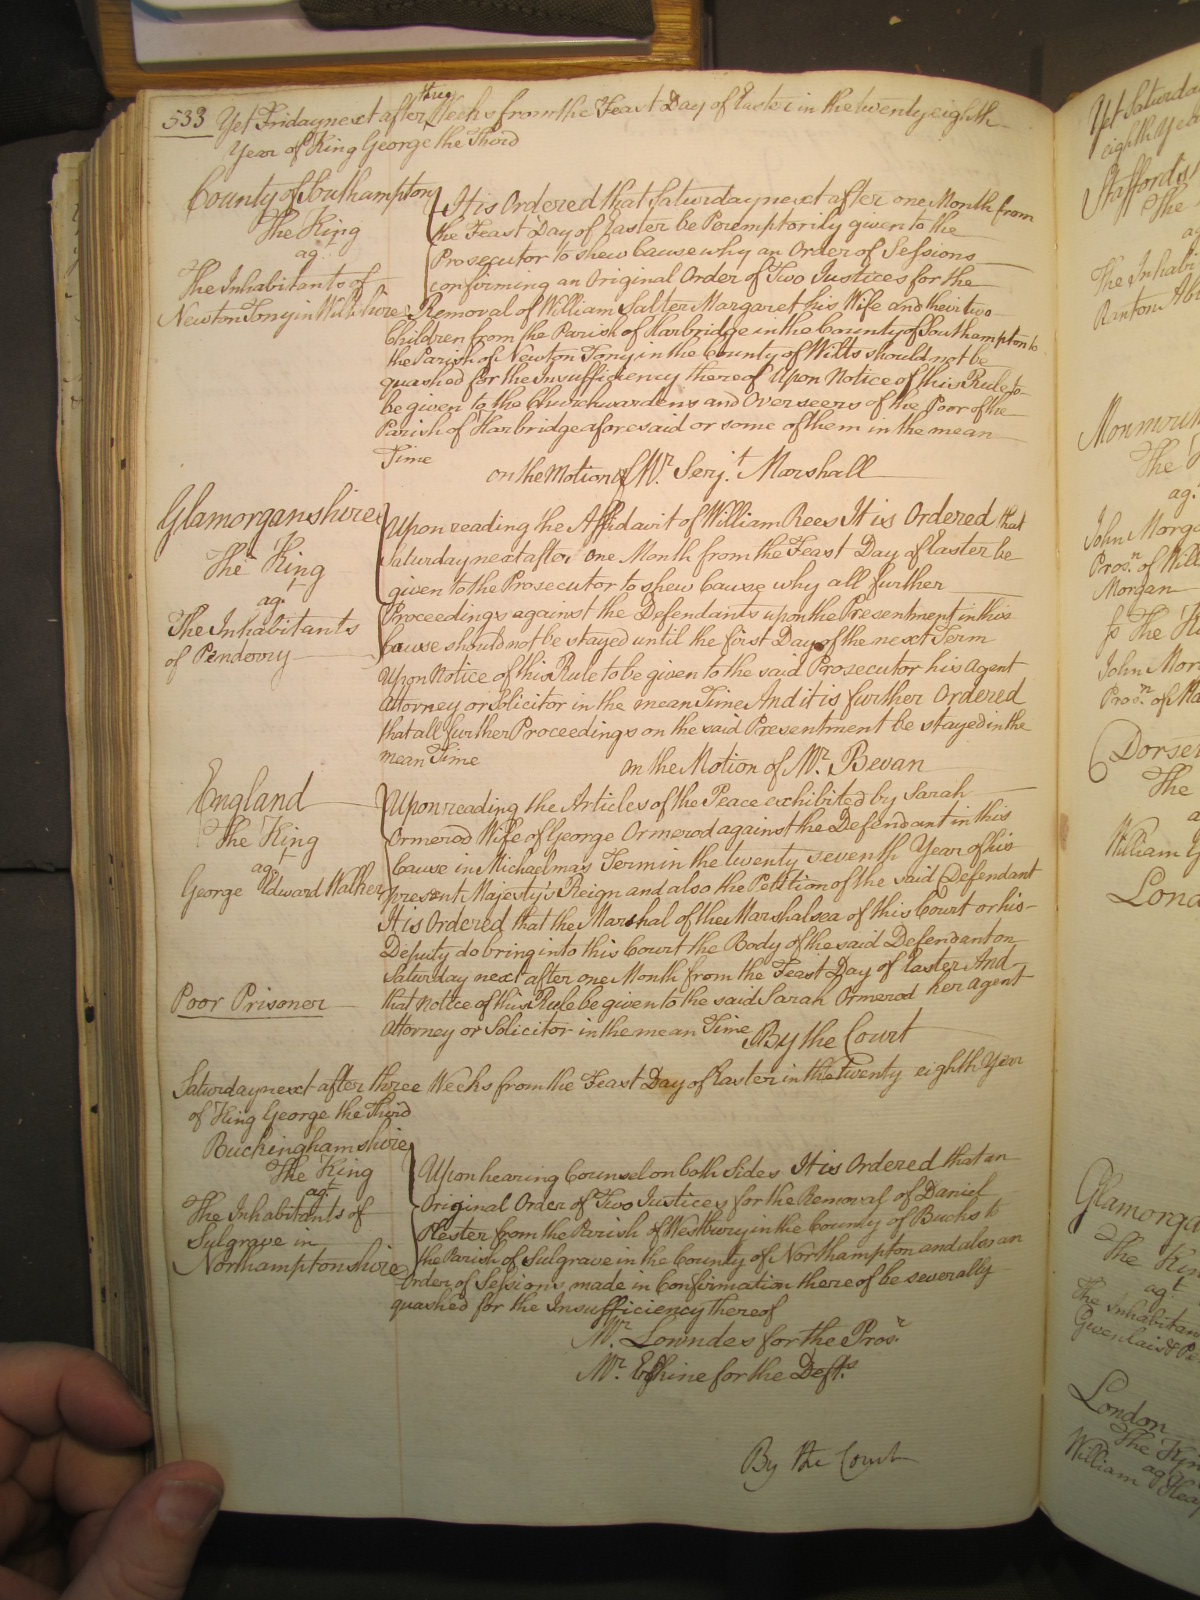 533 Yet Friday next after three Weeks from the Feast Day of Easter in the twenty eighth
Year of King George the Third
County of Southampton
The King
agt
The Inhabitants of
Newton Tony in Wiltshire
It is Ordered that Saturday next after one Month from
the Feast Day of Easter be Peremptorily given to the
Prosecutor to shew Cause why an Order of Sessions
confirming an Original Order of Two Justices for the
Removal of William Salter Margaret his Wife and their two
Children from the Parish of Harbridge in the County of Southampton to
the Parish of Newton Tony in the County of Wilts should not be
quashed for the Insufficiency thereof Upon Notice of this Rule to
be given to the Churchwardens and Overseers of the Poor of the
Parish of Harbridge aforesaid or some of them in the mean
Time
On the Motion of Mr. Serjt. Marshall
Glamorganshire
The King
agt
The Inhabitants
of Penderry
Upon reading the Affidavit of William Rees It is Ordered that
Saturday next after one Month from the Feast Day of Easter be
given to the Prosecutor to shew Cause why all further
Proceedings against the Defendants upon the Presentment in this
Cause should not be stayed until the first Day of the next Term
Upon Notice of this Rule to be given to the said Prosecutor his Agent
Attorney or Solicitor in the mean Time And it is further Ordered
that all further Proceedings on the said Presentment be stayed in the
mean Time
On the Motion of Mr. Bevan
England
The King
agt
George Edward Walker
Poor Prisoner
Upon reading the Articles of the Peace exhibited by Sarah
Ormerod Wife of George Ormerod against the Defendant in this
Cause in Michaelmas Term in the twenty seventh Year of his
present Majesty's Reign and also the Petition of the said Defendant
It is Ordered that the Marshal of the Marshalsea of this Court or his
Deputy do bring into this Court the Body of the said Defendant on
Saturday next after one Month from the Feast Day of Easter And
that notice of this Rule be given to the said Sarah Ormerod her Agent
Attorney or Solicitor in the mean Time
By the Court
Saturday next after three Weeks from the Feast Day of Easter in the twenty eighth Year
of King George the Third
Buckinghamshire
The King
agt
The Inhabitants of
Sulgrave in
Northamptonshire
Upon hearing Counsel on both Sides It is Ordered that an
Original Order of Two Justices for the Removal of Daniel
Hester from the Parish of Westbury in the County of Bucks to
the Parish of Sulgrave in the County of Northampton and also an
Order of Sessions made in Confirmation thereof be severally
quashed for the Insufficiency thereof
Mr. Lowndes for the Prosr.
Mr. Erskine for the Defts.
By the Court
Yet Saturda
eighth Year
The
ag
The Inhabi
Ranton Ab
The K
agt
John Morga
Prosn. of Will
Morgan
John Mor
Prosn. of
Dorset
The
William
Lond
Glamorga
The Kin
agt
The Inhabitan
London
The Kin
agt
William